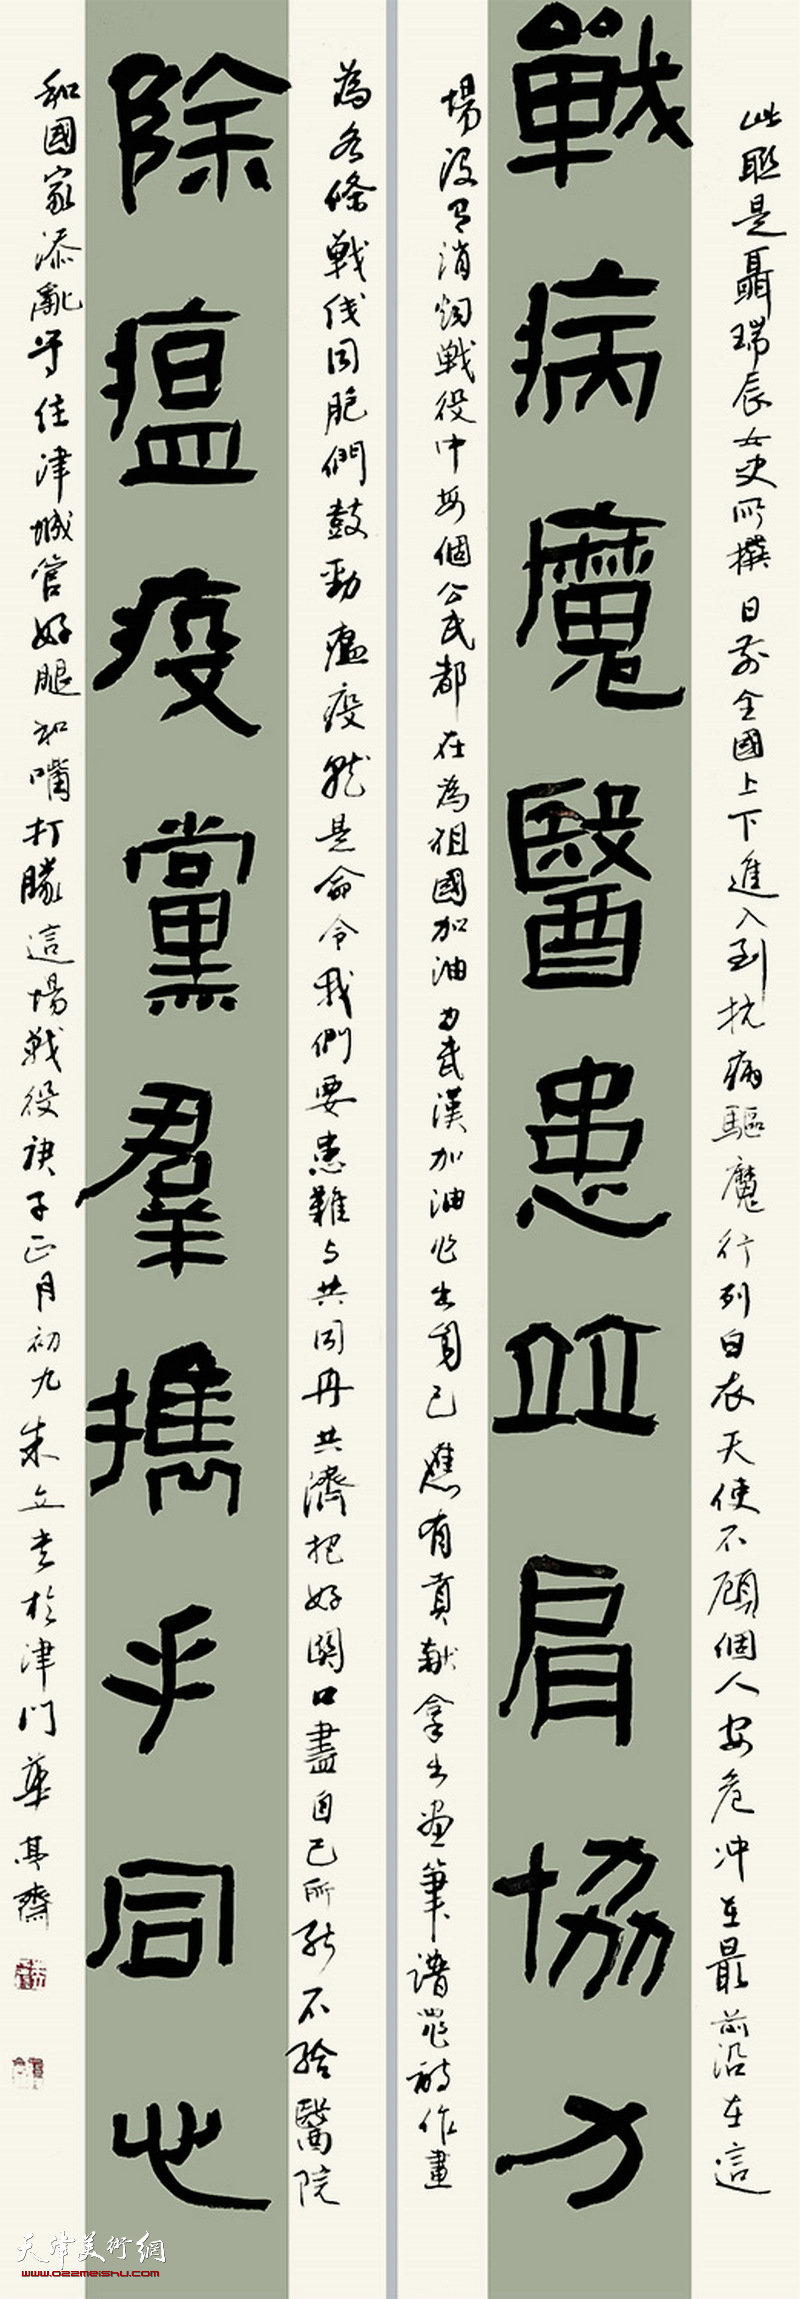 此聯是聶瑞辰女史所撰日前全國上下進入到抗病驅魔行列白衣天使不顧個人安危冲在最前沿在這
戰病魔醫患竝肩協力
場沒有消烟戰役中每個公民都在為祖國加油為武漢加油作出自己應有貢献拿出画筆譜寫詩作畫
為各條戰线同胞們鼓勁瘟疫就是命令我們要患難与共同舟共濟把好関口盡自己所能不给醫院
除瘟疫黨羣携手同心
和國家添亂守住津城管好腿和嘴打勝這場戰役庚子正月初九朱立书於津門華其齋
天津美術網
www.022meishu.com